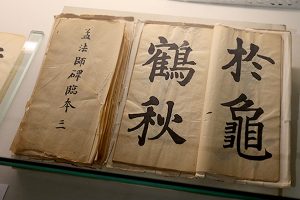 孟法師碑臨本 三
於龜
鶴秋